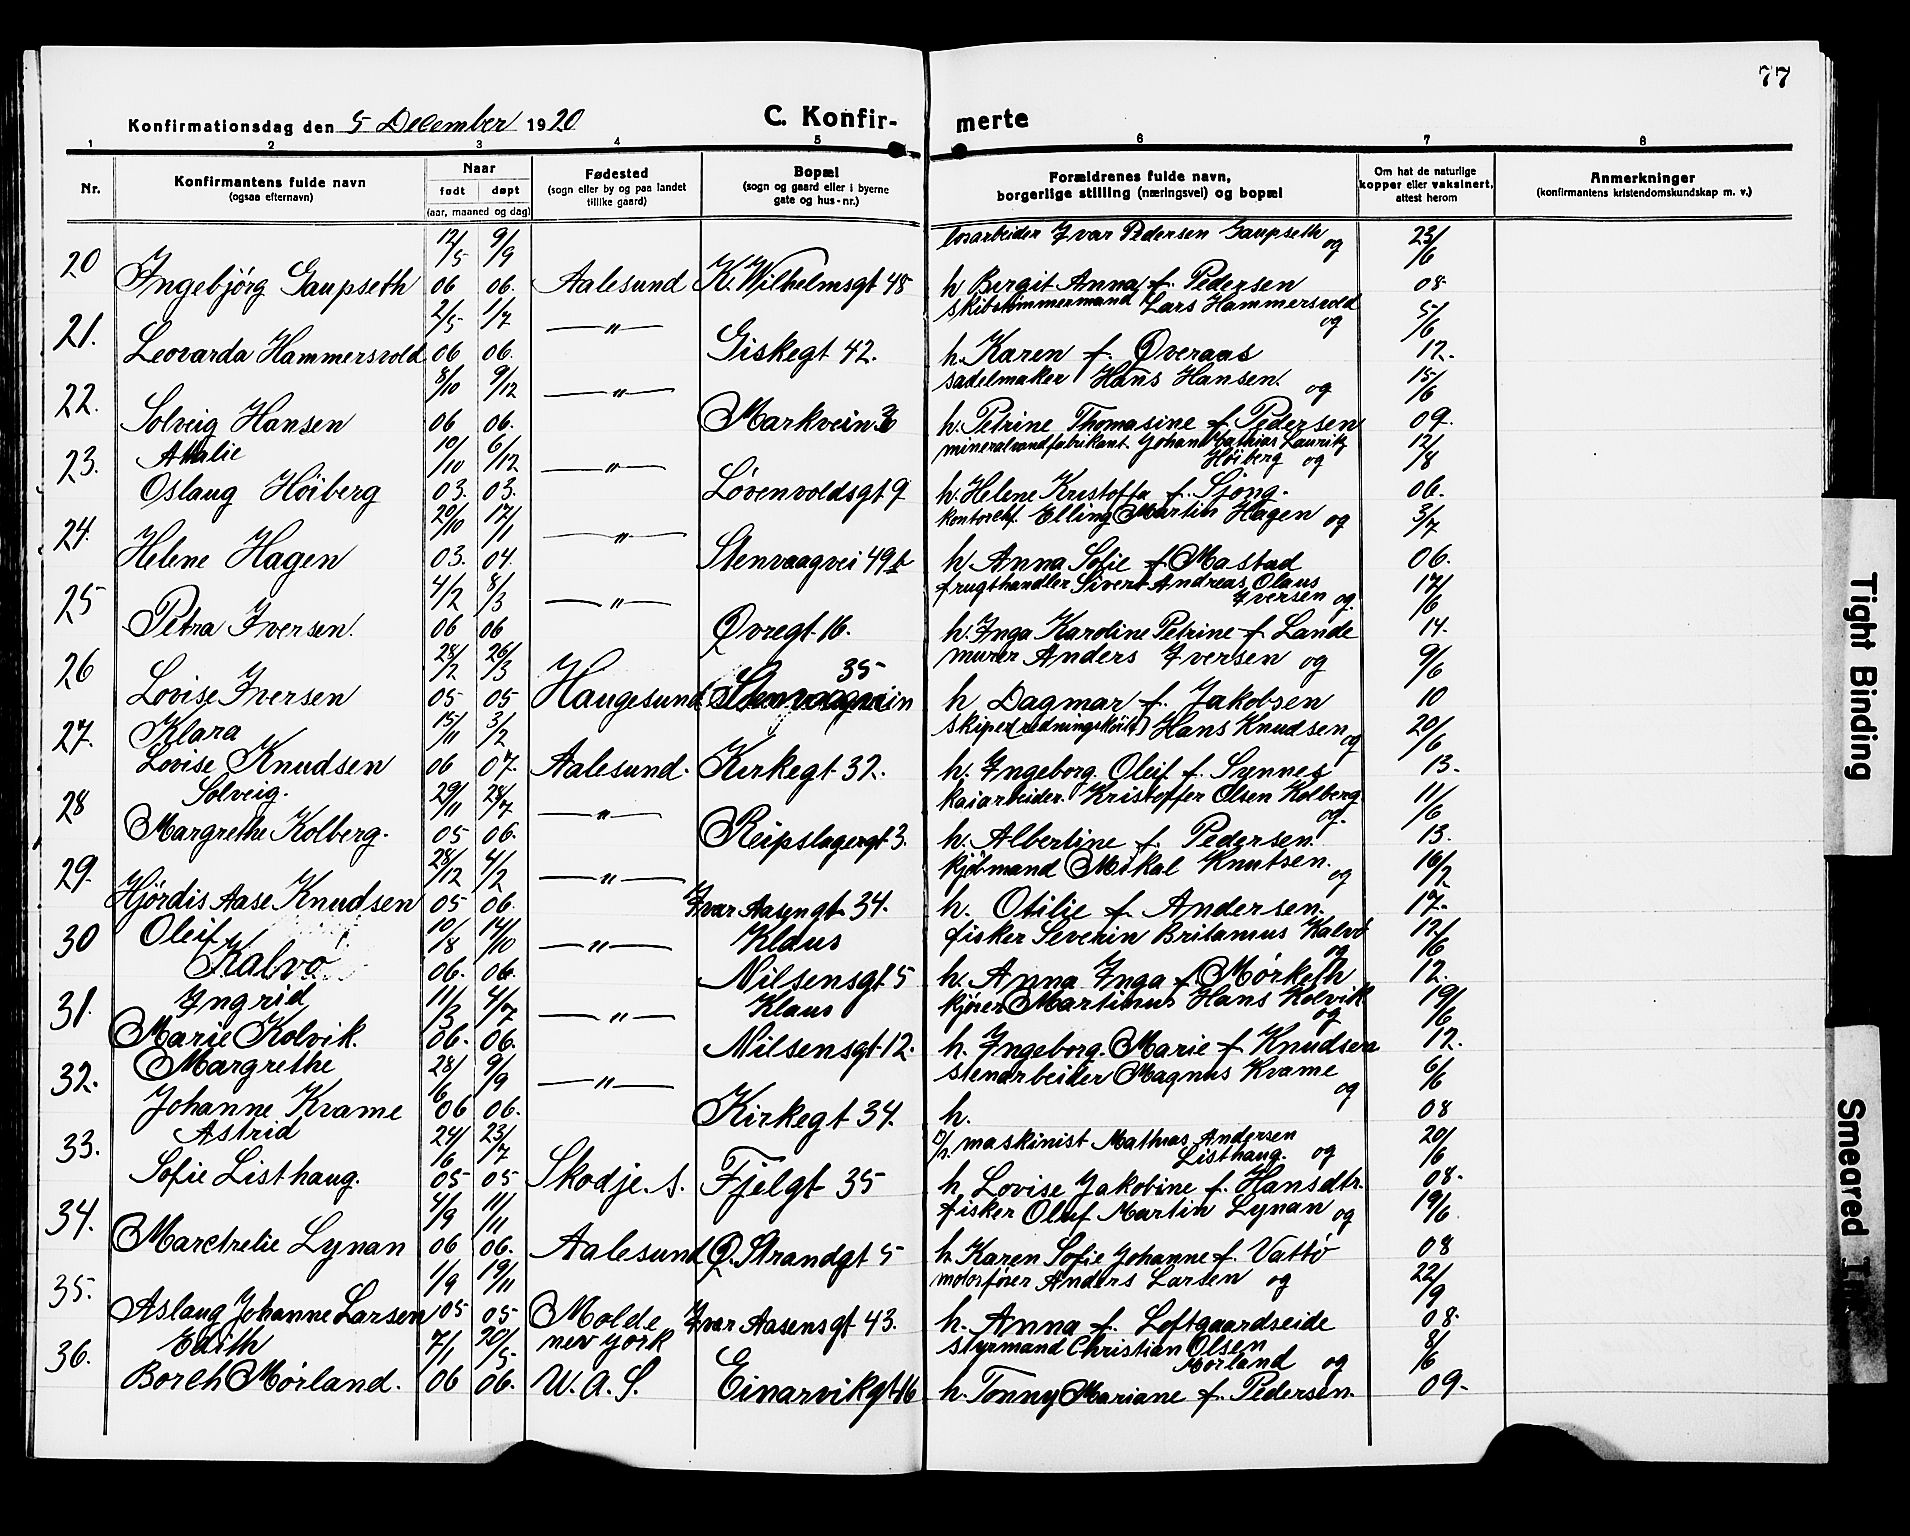 77
Konfirmationsdag den 5 December 1920
C. Konfir-
merte
1 2 3 4 5 6 7 8
Nr.
Konfirmantens fulde navn
(ogsaa efternavn)
Naar
født døpt
(aar, maaned og dag)
Fødested
(sogn eller by og paa landet
tillike gaard)
Bopæl
(sogn og gaard eller i byerne
gate og hus-nr.)
Forældrenes fulde navn,
borgerlige stilling (næringsvei) og bopæl
Om hat de naturlige
kopper eller vaksinert,
attest herom
Anmerkninger
(konfirmantens kristendomskundskap m. v.)
12/5 9/9 losarbeider Ivar Pedersen Gaupseth og 23/6
20 Ingebjörg Gaupseth 06 06. Aalesund K. Wilhelmsgt 48 h Birgit Anna f. Pedersen 08
2/5 1/7 skibstømmermand Lars Hammersvold og 5/6
21. Leovarda Hammersvold 06 06. —"— Giskegt 42. h. Karen f. Øveraas 12.
8/10 9/12 sadelmaker Hans Hansen. og 15/6
22. Solveig Hansen 06 06. —"— Markvein 36 h. Petrine Thomasine f. Pedersen 09.
Atalie 19/10 6/12 mineralvandfabrikant Johan Mathias Lauritz 12/8
Höiberg og
23. Oslaug Höiberg 03. 03. —"— Løvenvoldsgt 9 h. Helene Kristoffa f. Sjong. 06.
20/10 17/1 kontorchf. Elling Martin Hagen og 3/7
24. Helene Hagen 03. 04. —"— Stenvaagvei 49 b h. Anna Sofie f. Mastad 06.
4/2 8/3 frugthandler Sivert Andreas Olaus 17/6
Iversen og.
25 Petra Iversen. 06 06 —"— Øvregt 16. h. Inga Karoline Petrine f. Lande 14.
28/2 26/3 35 murer Anders Iversen og 9/6
26 Lovise Iversen 05 05 Haugesund Stenvaagvein h Dagmar f. Jakobsen 10
Klara 15/11 3/2 skiper (redningsköite) Hans Knudsen og 20/6
27. Lovise Knudsen 06 07. Aalesund. Kirkegt 32. h. Ingeborg Oleif f. Synnes 13.
Solveig. 29/11 28/7 kaiarbeider. Kristoffer Olsen Kolberg og. 11/6
28 Margrethe Kolberg. 05 06. —"— Reipslagergt 3. h. Albertine f. Pedersen. 13.
28/12 4/2 kjøbmand Mikal Knutsen. og 16/2
29. Hjördis Aase Knudsen 05 06. —"— Ivar Aasengt 34. h. Otilie f. Andersen. 17.
Oleif 10/8 14/10 Klaus fisker Severin Britanus Kalvø og 12/6
30 Kalvø 06. 06. —"— Nilsensgt 5 h. Anna Inga f. Mørketh 12.
Ingrid 11/3 4/7 Klaus kjører Martinus Hans Kolvik og 19/6
31. Marie Kolvik. 06. 06. —"— Nilsensgt 12. h. Ingeborg. Marie f. Knudsen 12.
Margrethe 28/6 9/9 stenarbeider Magnus Krame og 6/6
32. Johanne Krame 06 06. —"— Kirkegt 34. h. 08
Astrid 24/6 23/7 maskinist Mathias Andersen 20/6
Listhaug. og
33. Sofie Listhaug. 05 05 Skodje. s. Fjelgt 35 h Lovise Jakobine f. Hansdtr. 08.
4/9 11/11 fisker Oluf Martin Lynan og 19/6
34. Maretrelie Lynan 06 06. Aalesund Ø. Strandgt 5 h. Karen Sofie Johanne f. Vattø 08
1/9 19/11 motorfører Anders Larsen og 22/9
35. Aslaug Johanne Larsen 05 05 Molde Ivar Aasensgt 43. h. Anna f. Loftgaardseide 08.
Edith 7/1 20/5 new york styrmand Christian Olsen 8/6
Mørland og
36. Borch Mørland. 06 06. U. A. S. Einarvikgt 16 h. Tonny Mariane f. Pedersen. 09.
Tight Binding
Smeared